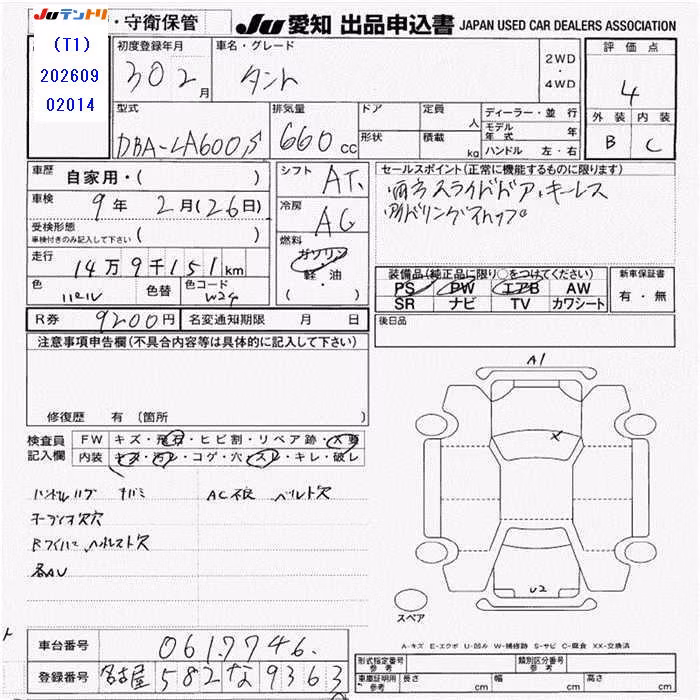 Juテントリ
(T1)
202609
02014
・守衛保管
JU 愛知 出品申込書 JAPAN USED CAR DEALERS ASSOCIATION
初度登録年月 車名・グレード 評価点
30 2月 タント 2WD・4WD 4
外装 内装
B C
型式 排気量 ドア 定員 人 ディーラー・並行
DBA-LA600S 660cc 形状 積載 kg モデル年式 年
ハンドル 左・右
車歴 自家用・( )
車検 9年 2月(26日)
受検形態 車検付きのみ記入して下さい ( )
走行 14万9千151km
色 色替 色コード W24
シフト AT
冷房 AC
燃料 ガソリン・軽・油 ( )
セールスポイント(正常に機能するものに限ります)
両方スライドドア・キーレス
アイドリングストップ
装備品(純正品に限り○をつけてください) 新車保証書
PS PW エアB AW 有・無
SR ナビ TV カワシート
R券 9200円 名変通知期限 月 日
後日品
注意事項申告欄(不具合内容等は具体的に記入して下さい)
修復歴 有(箇所
検査員記入欄 FW キズ・飛石・ヒビ割・リペア跡・X要
内装 キズ・汚レ・コゲ・穴・スレ・キレ・破レ
AC不良 ベルト欠
オーディオ欠穴
各AU
A1
X
U2
スペア
A-キズ E-エクボ U-凹ル W-補修跡 S-サビ C-腐食 XX-交換済
車台番号 0617746
登録番号 名古屋 582 な 9363
形式指定番号 参考 類別区分番号 参考
車庫証明用 参考 長さ cm 幅 cm 高さ cm